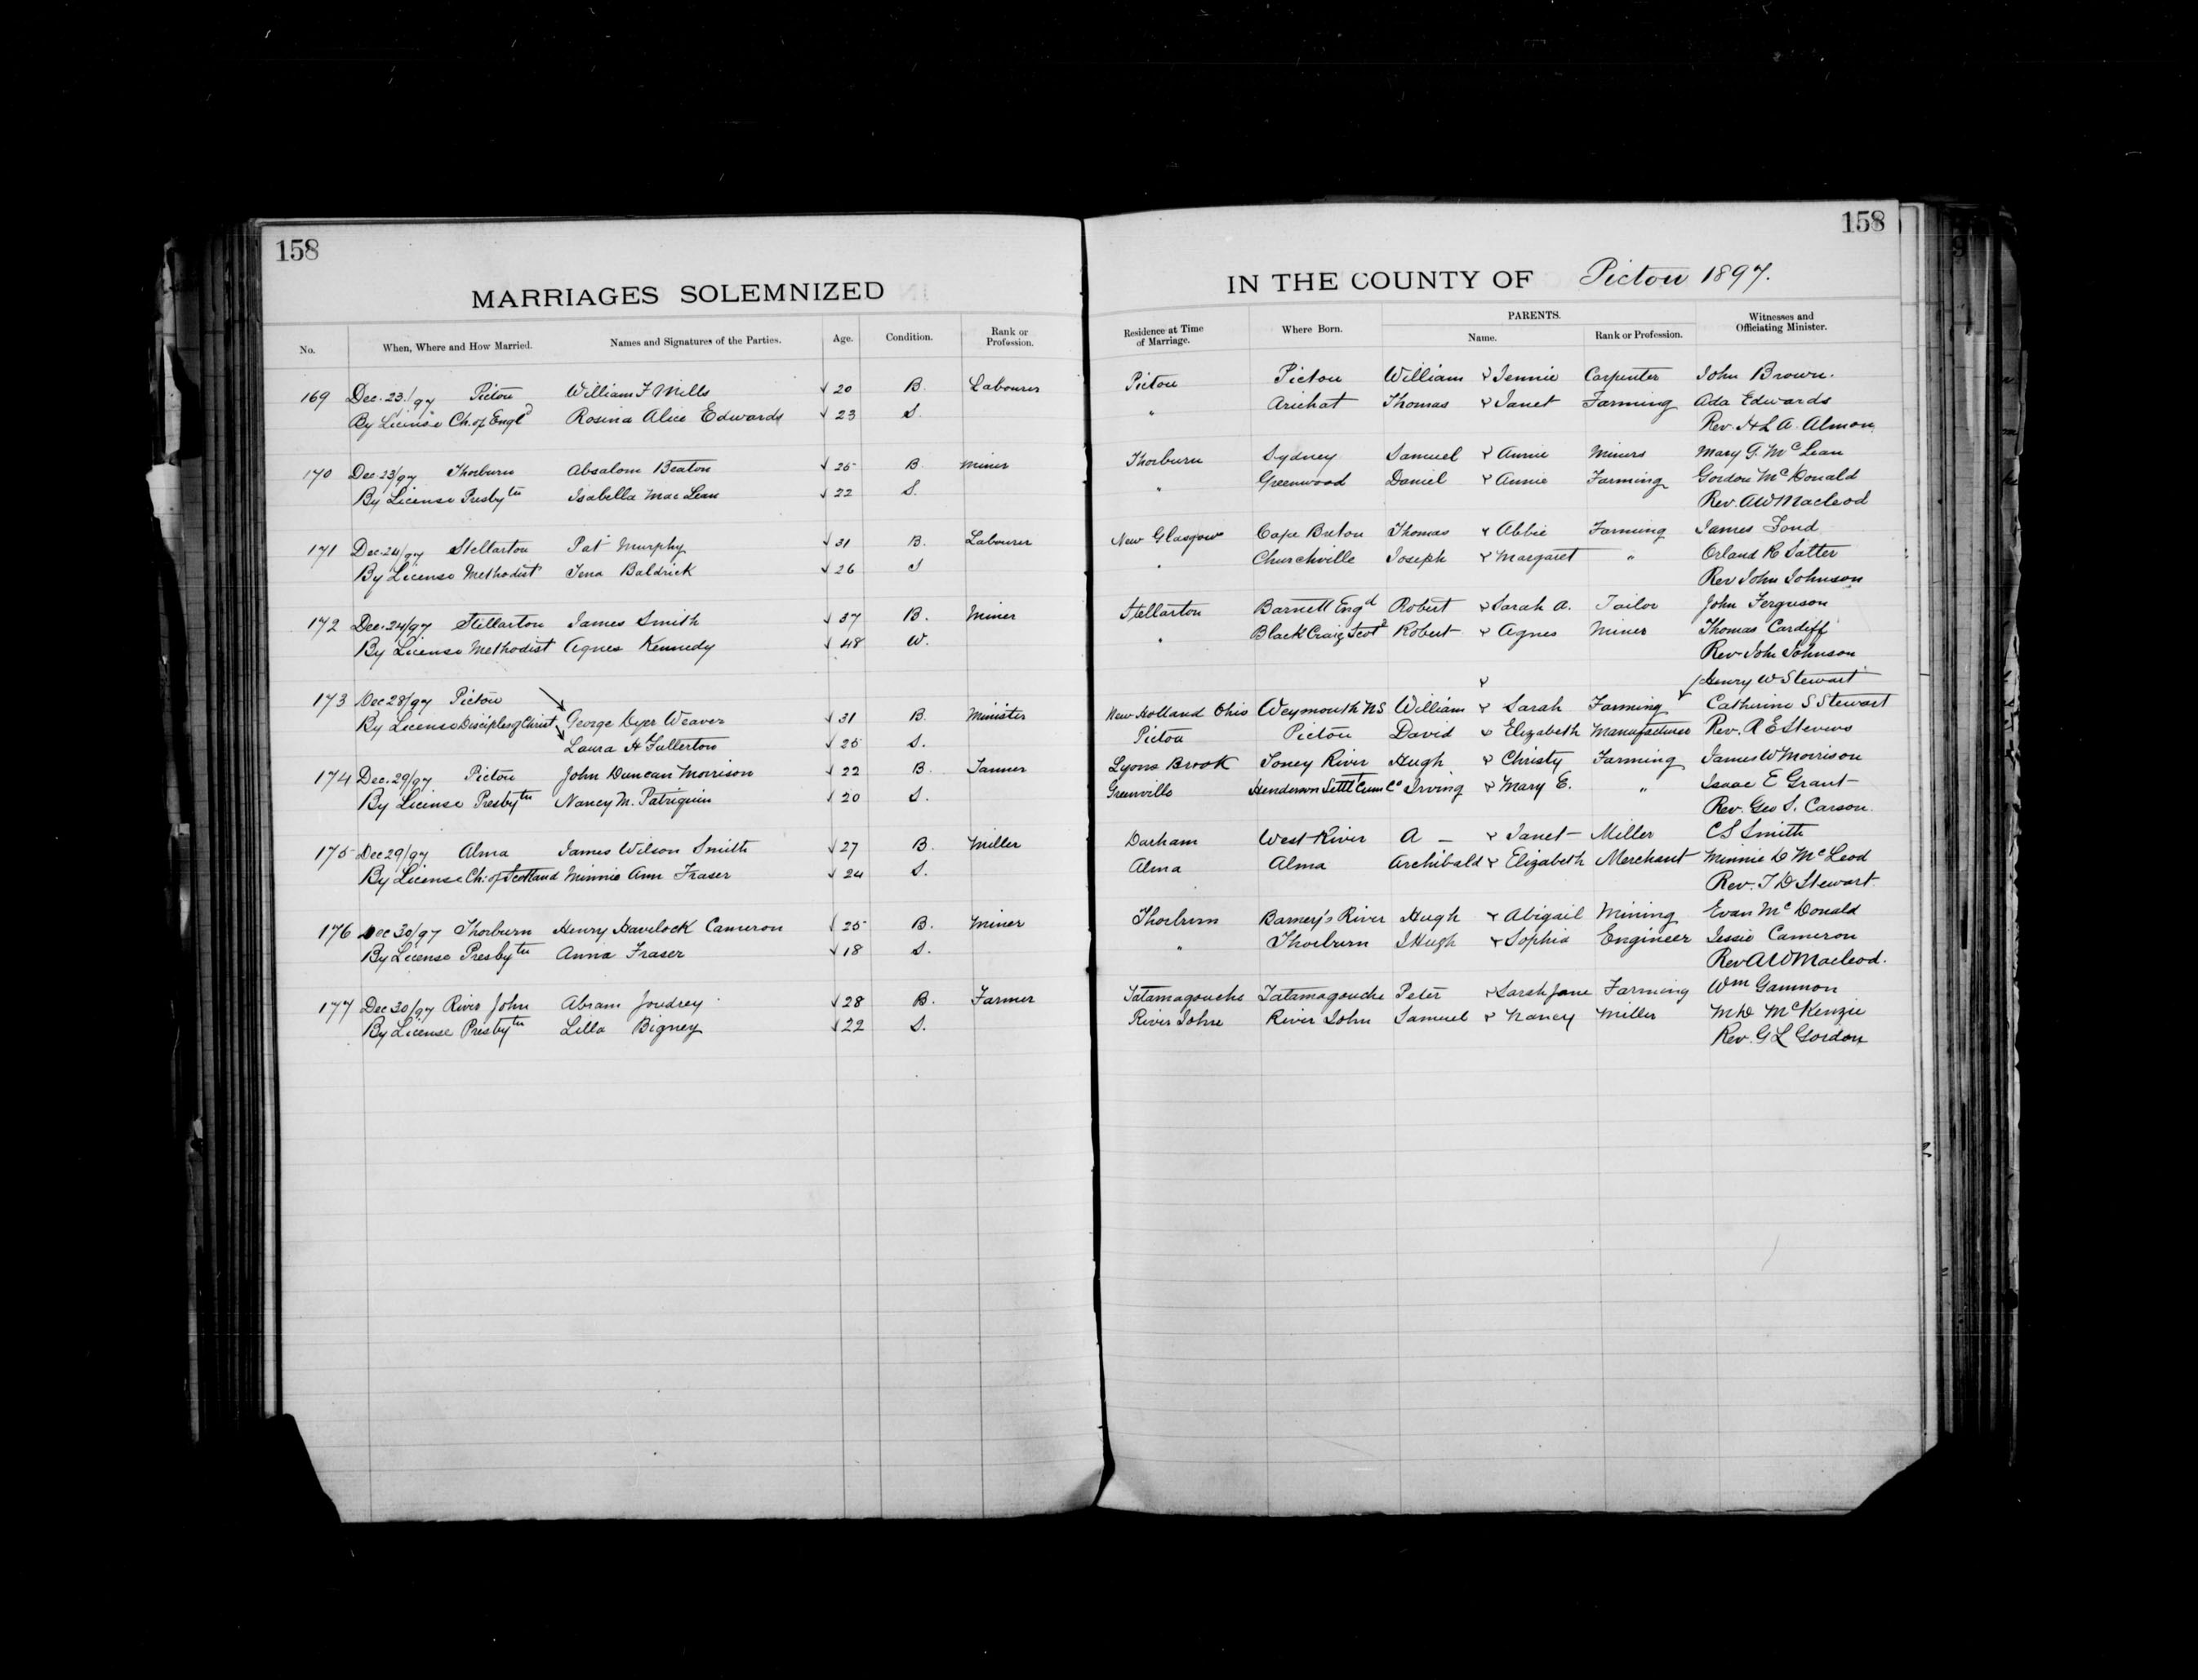 158
158
MARRIAGES SOLEMNIZED IN THE COUNTY OF Pictou 1897.
No. When, Where and How Married. Names and Signatures of the Parties. Age. Condition. Rank or Profession. Residence at Time of Marriage. Where Born. PARENTS. Name. Rank or Profession. Witnesses and Officiating Minister.
169 Dec. 23/97 Pictou William F Mills √ 20 B. Labourer Pictou Pictou William & Jennie Carpenter John Brown.
By License Ch. of Engld Rosina Alice Edwards √ 23 S. " Arichat Thomas & Janet Farming Ada Edwards
Rev. H L A. Almon
170 Dec 23/97 Thorburn Absalom Beaton √ 25 B. Miner Thorburn Sydney Samuel & Annie Miners Mary G. McLean
By License Presbytn Isabella MacLean √ 22 S. " Greenwood Daniel & Annie Farming Gordon McDonald
Rev. A W Macleod
171 Dec. 24/97 Stellarton Pat Murphy √ 31 B. Labourer New Glasgow Cape Breton Thomas & Abbie Farming James
By License Methodist Tena Baldrick √ 26 S " Churchville Joseph & Margaret " Orland R
Rev John Johnson
172 Dec. 24/97 Stellarton James Smith √ 37 B. Miner Stellarton Barnett Engd Robert & Sarah A. Tailor John Ferguson
By License Methodist Agnes Kennedy √ 48 W. " Black Craig Scotd Robert & Agnes Miner Thomas Cardiff
Rev. John Johnson
& Henry W Stewart
173 Dec 28/97 Pictou
By License Disciples of Christ George Dyer Weaver √ 31 B. Minister New Holland Ohio Weymouth NS William & Sarah Farming Catherine S Stewart
Laura H Fullerton √ 25 S. Pictou Pictou David & Elizabeth Manufacturer Rev. R E Stevens
174 Dec. 29/97 Pictou John Duncan Morrison √ 22 B. Tanner Lyons Brook Toney River Hugh & Christy Farming James W Morrison
By License Presbytn Nancy M. Patriquin √ 20 S. Greenville Henderson Settlt Cum Co Irving & Mary E. " Isaac E Grant
Rev. Geo S. Carson.
175 Dec 29/97 Alma James Wilson Smith √ 27 B. Miller Durham West River A — & Janet Miller C S Smith
By License Ch: of Scotland Minnie Ann Fraser √ 24 S. Alma Alma Archibald & Elizabeth Merchant Minnie D McLeod
Rev. T D Stewart
176 Dec 30/97 Thorburn Henry Havelock Cameron √ 25 B. Miner Thorburn Barney's River Hugh & Abigail Mining Evan McDonald
By License Presbytn Anna Fraser √ 18 S. " Thorburn J Hugh & Sophia Engineer Jessie Cameron
Rev A W Macleod.
177 Dec 30/97 River John Abram Joudrey √ 28 B. Farmer Tatamagouche Tatamagouche Peter & Sarah Jane Farming Wm Gammon
By License Presbytn Lilla Bigney √ 22 S. River John River John Samuel & Nancy Miller M D McKenzie
Rev. G L Gordon